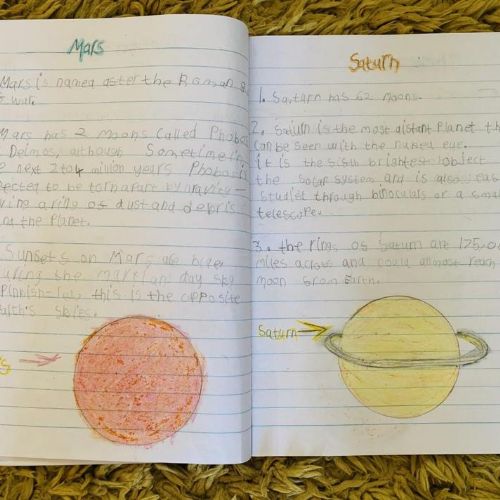 Mars
Mars is named aster the Roman
war.
Mars has 2 moons called
Deimos, although Sometime
next 2 to 4 million years Phobos is
to be torn apart by
a ring of dust and debris
the Planet.
Sunsets on Mars are blue.
the martian day sky
this is the opposite
skies.
Saturn
1. Saturn has 62 moons.
2. Saturn is the most distant Planet
can be seen with the naked eye.
it is the sisth brightest object
the solar system and is also
through binoculars or a small
telescope.
3. the rings of Saturn are
miles across and could almost reach
moon from Earth.
Saturn